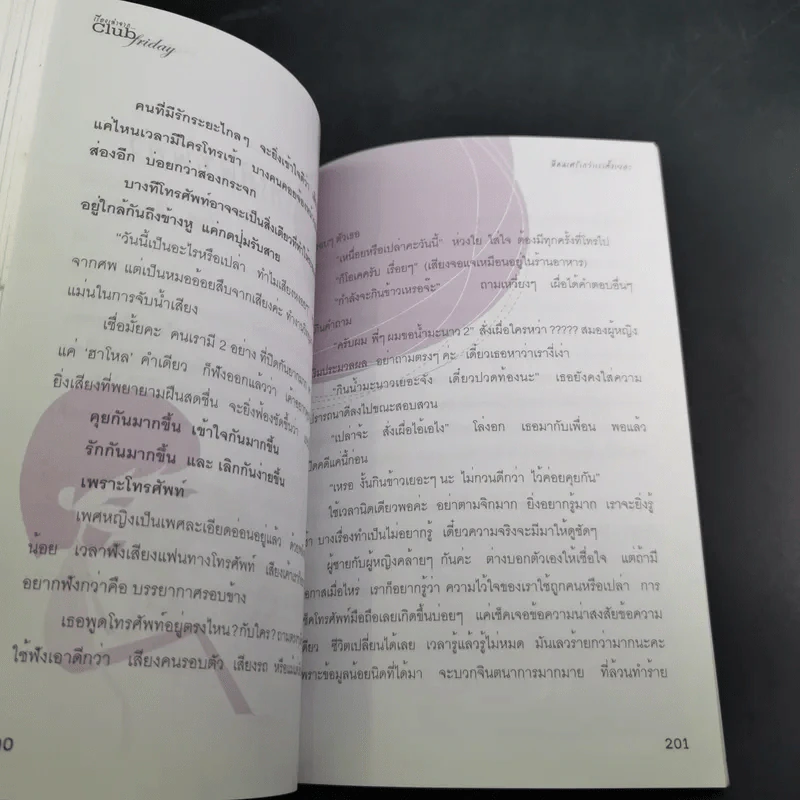 เรื่องเล่าจาก
Club
friday
คนที่มีรักระยะไกลๆ จะยิ่งเข้าใจดีว่า
แค่ไหนเวลามีใครโทรเข้า บางคนคอยจ้อง
ส่องอีก บ่อยกว่าส่องกระจก
บางทีโทรศัพท์อาจจะเป็นสิ่งเดียวที่ทำให้
อยู่ใกล้กันถึงข้างหู แค่กดปุ่มรับสาย
"วันนี้เป็นอะไรหรือเปล่า ทำไมเสียง
จากศพ แต่เป็นหมออ้อยสืบจากเสียงค่ะ ทำงาน
แม่นในการจับน้ำเสียง
เชื่อมั้ยคะ คนเรามี 2 อย่าง ที่ปิดกันยาก
แค่ 'ฮาโหล' คำเดียว ก็ฟังออกแล้วว่า
ยิ่งเสียงที่พยายามฝืนสดชื่น จะยิ่งฟ้องชัดขึ้นว่า
คุยกันมากขึ้น เข้าใจกันมากขึ้น
รักกันมากขึ้น และ เลิกกันง่ายขึ้น
เพราะโทรศัพท์
เพศหญิงเป็นเพศละเอียดอ่อนอยู่แล้ว
น้อย เวลาฟังเสียงแฟนทางโทรศัพท์
อยากฟังกว่าคือ บรรยากาศรอบข้าง
เธอพูดโทรศัพท์อยู่ตรงไหน? กับใคร?
ใช้ฟังเอาดีกว่า เสียงคนรอบตัว เสียงรถ
รอบๆ ตัวเธอ
"เหนื่อยหรือเปล่าคะวันนี้" ห่วงใย ใส่ใจ ต้องมีทุกครั้งที่โทรไป
"ก็โอเคครับ เรื่อยๆ" (เสียงจอแจเหมือนอยู่ในร้านอาหาร)
"กำลังจะกินข้าวเหรอจ๊ะ" ถามเหวี่ยงๆ เผื่อได้คำตอบอื่นๆ
คำถาม
"ครับผม พี่ๆ ผมขอน้ำมะนาว 2" สั่งเผื่อใครหว่า ????? สมองผู้หญิง
ประมวลผล อย่าถามตรงๆ ค่ะ เดี๋ยวเธอหาว่าเราขี้เง่า
"กินน้ำมะนาวเยอะจัง เดี๋ยวปวดท้องนะ" เธอยังคงใส่ความ
ปรารถนาดีลงไปขณะสอบสวน
"เปล่าจ้ะ สั่งเผื่อไอ้เอไง" โล่งอก เธอมากับเพื่อน พอแล้ว
ปิดคดีแค่นี้ก่อน
"เหรอ งั้นกินข้าวเยอะๆ นะ ไม่กวนดีกว่า ไว้ค่อยคุยกัน"
ใช้เวลานิดเดียวพอค่ะ อย่าตามจิกมาก ยิ่งอยากรู้มาก เราจะยิ่งรู้
บางเรื่องทำเป็นไม่อยากรู้ เดี๋ยวความจริงจะมีมาให้ดูชัดๆ
ผู้ชายกับผู้หญิงคล้ายๆ กันค่ะ ต่างบอกตัวเองให้เชื่อใจ แต่ถ้ามี
โอกาสเมื่อไหร่ เราก็อยากรู้ว่า ความไว้ใจของเราใช้ถูกคนหรือเปล่า การ
เช็คโทรศัพท์มือถือเลยเกิดขึ้นบ่อยๆ แค่เช็คเจอข้อความน่าสงสัยข้อความ
เดียว ชีวิตเปลี่ยนได้เลย เวลารู้แล้วรู้ไม่หมด มันเลวร้ายกว่ามากนะคะ
เพราะข้อมูลน้อยนิดที่ได้มา จะบวกจินตนาการมากมาย ที่ล้วนทำร้าย
201